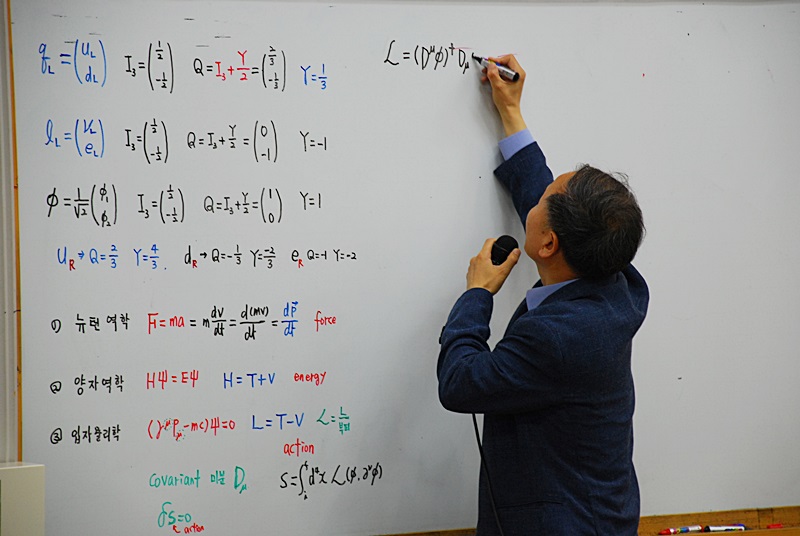 q_L = (u_L d_L) I₃ = (1/2 -1/2) Q = I₃ + Y/2 = (2/3 -1/3) Y = 1/3
l_L = (ν_L e_L) I₃ = (1/2 -1/2) Q = I₃ + Y/2 = (0 -1) Y = -1
φ = 1/√2 (φ₁ φ₂) I₃ = (1/2 -1/2) Q = I₃ + Y/2 = (1 0) Y = 1
u_R → Q = 2/3 Y = 4/3 . d_R → Q = -1/3 Y = -2/3 e_R Q = -1 Y = -2
① 뉴턴 역학 F = ma = m dv/dt = d(mv)/dt = dp⃗/dt force
② 양자역학 HΨ = EΨ H = T+V energy
③ 입자물리학 (γ^μ P_μ - mc)Ψ = 0 L = T-V ℒ = L/부피
action
covariant 미분 D_μ S = ∫ d⁴x ℒ(φ, ∂^μφ)
δS = 0
action
ℒ = (D^μφ)† D_μ